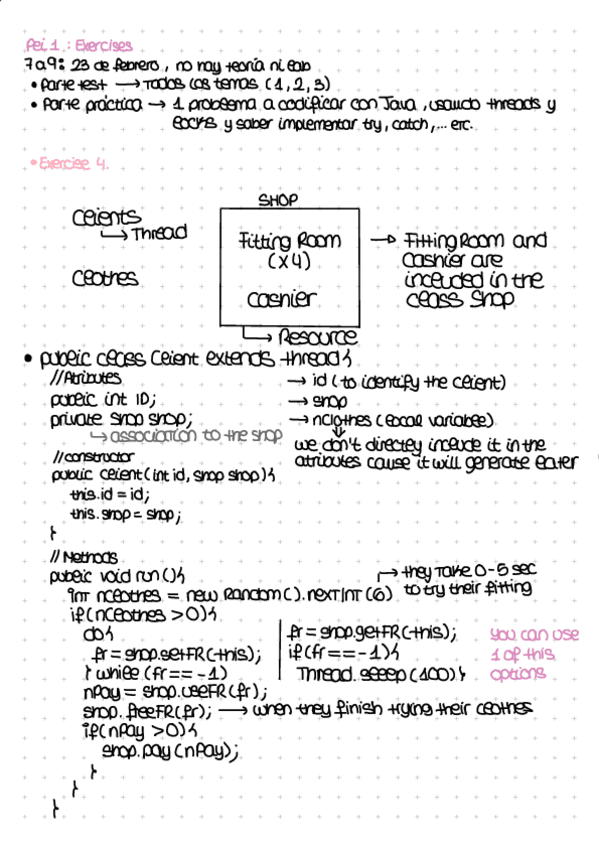 Pei 1 : Exercises
7 a 9: 23 de febrero, no hay teoría ni lab
• Parte test → Todos los temas (1, 2, 3)
• Parte práctica → 1 problema a codificar con Java, usando threads y
locks y saber implementar try, catch,... etc.
• Exercise 4.
SHOP
Clients
→ Thread
Clothes
Fitting Room
(x4)
cashier
→ Fitting Room and
Cashier are
included in the
class Shop
→ Resource
• public class Client extends thread{
//Atributes
public int ID;
private Shop shop;
→ association to the shop
→ id (to identify the client)
→ shop
→ nclothes (local variable)
we don't directly include it in the
atributes cause it will generate later
//constructor
public client(int id, shop shop){
this.id = id;
this.shop = shop;
}
// Methods
public void run(){
→ they take 0-5 sec
to try their fitting
int nclothes = new Random().nextInt(6)
if(nclothes >0){
do{
fr = shop.getFR(this);
} while (fr == -1)
fr = shop.getFR(this);
if(fr == -1){
Thread.sleep(100)}
you can use
1 of this
options
nPay = shop.useFR(fr);
shop.freeFR(fr); → when they finish trying their clothes
if(nPay >0){
shop.pay(nPay);
}
}
}